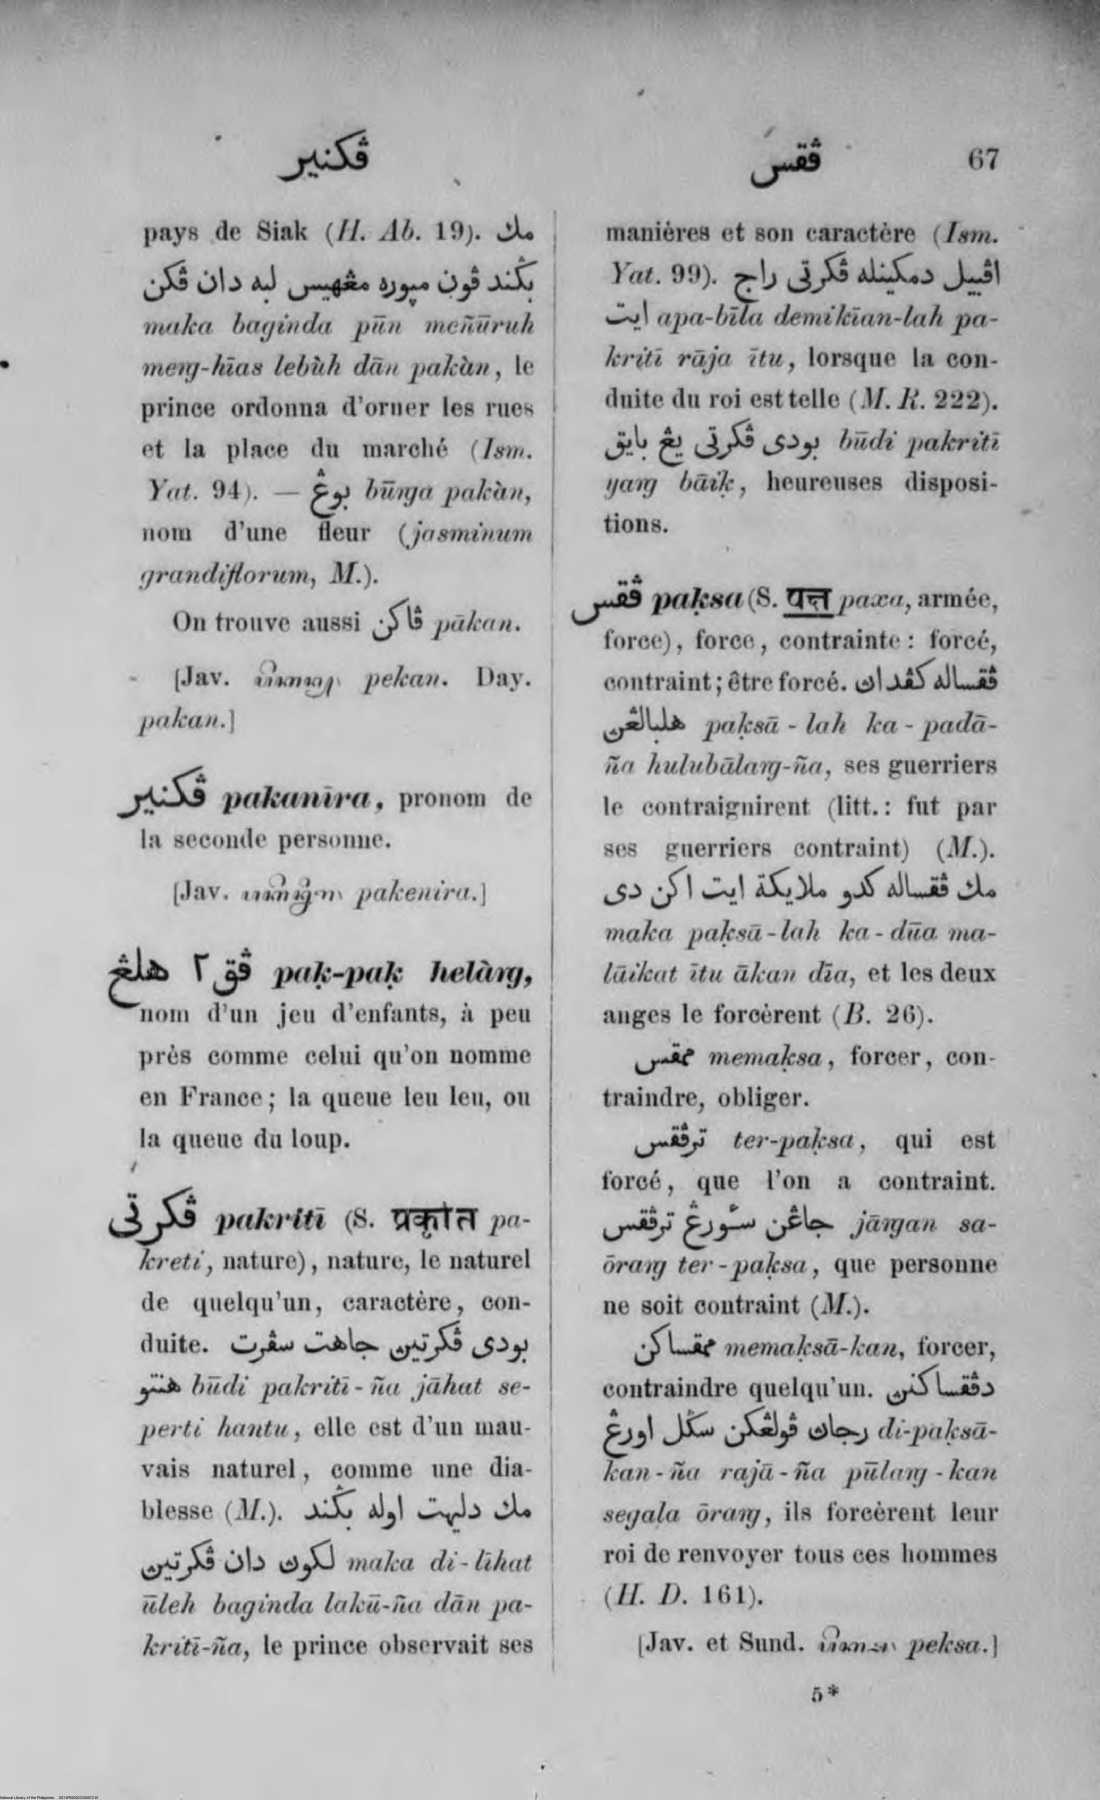 ڤکنير
ڤقس 67
pays de Siak (H. Ab. 19). مك
بڬند ڤون ميوره مڠهيس لبه دان ڤکن
maka baginda pūn meñūruh
meng-hīas lebùh dān pakàn, le
prince ordonna d'orner les rues
et la place du marché (Ism.
Yat. 94). — بوڠ būnga pakàn,
nom d'une fleur (jasminum
grandiflorum, M.).
On trouve aussi ڤاکن pākan.
[Jav. pekan. Day.
pakan.]
ڤکنير pakanīra, pronom de
la seconde personne.
[Jav. pakenira.]
ڤق ٢ هلڠ paḳ-paḳ helàng,
nom d'un jeu d'enfants, à peu
près comme celui qu'on nomme
en France; la queue leu leu, ou
la queue du loup.
ڤکرتي pakritī (S. प्रकृति pa-
kreti, nature), nature, le naturel
de quelqu'un, caractère, con-
duite. بودى ڤکرتين جاهت سڤرت
هنتو būdi pakritī-ña jāhat se-
perti hantu, elle est d'un mau-
vais naturel, comme une dia-
blesse (M.). مك دليهت اوله بڬند
لکون دان ڤکرتين maka di-līhat
ūleh baginda lakū-ña dān pa-
kritī-ña, le prince observait ses
manières et son caractère (Ism.
Yat. 99). اڤبيل دمکينله ڤکرتى راج
ايت apa-bīla demikīan-lah pa-
kritī rāja ītu, lorsque la con-
duite du roi est telle (M. R. 222).
بودى ڤکرتى يڠ بايق būdi pakritī
yang bāiḳ, heureuses disposi-
tions.
ڤقس paḳsa (S. पक्ष paxa, armée,
force), force, contrainte: forcé,
contraint; être forcé. ڤقساله کڤدان
هلبالڠن paḳsā-lah ka-padā-
ña hulubālang-ña, ses guerriers
le contraignirent (litt.: fut par
ses guerriers contraint) (M.).
مك ڤقساله کدو ملايکة ايت اکن دى
maka paḳsā-lah ka-dūa ma-
lāikat ītu ākan dīa, et les deux
anges le forcèrent (B. 26).
ممقس memaḳsa, forcer, con-
traindre, obliger.
ترڤقس ter-paḳsa, qui est
forcé, que l'on a contraint.
جاڠن سـٔورڠ ترڤقس jāngan sa-
ōrang ter-paḳsa, que personne
ne soit contraint (M.).
ممقساکن memaḳsā-kan, forcer,
contraindre quelqu'un. دڤقساکنن
رجان ڤولڠکن سڬل اورڠ di-paḳsā-
kan-ña rajā-ña pūlang-kan
segala ōrang, ils forcèrent leur
roi de renvoyer tous ces hommes
(H. D. 161).
[Jav. et Sund. peksa.]
5*